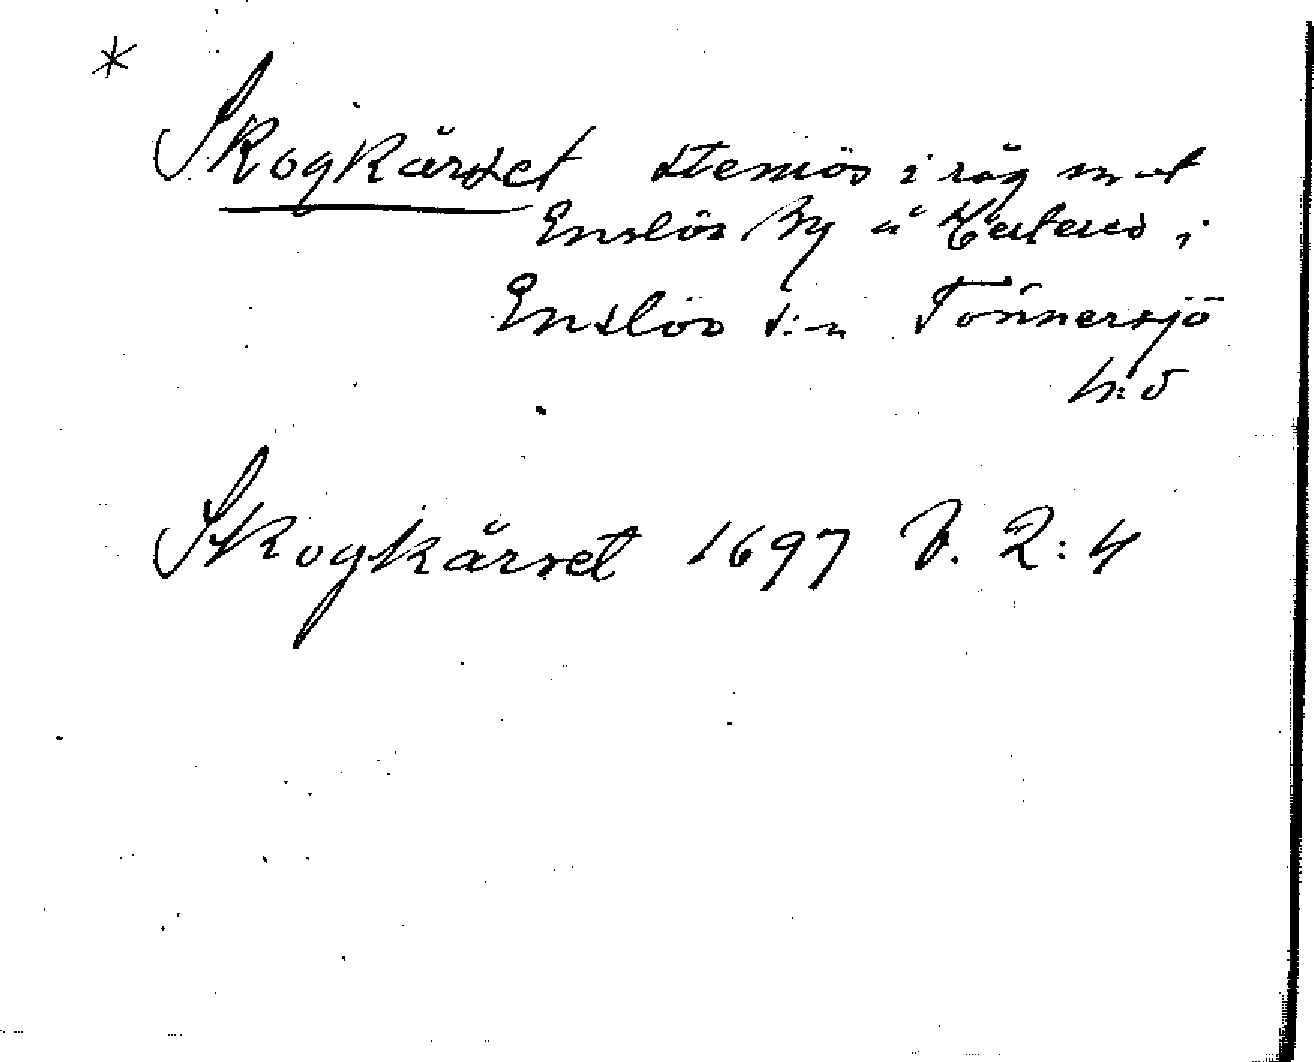 *
Skogkärret stenrös i råg mot
Enslöv By å
Enslöv s:n Tönnersjö
h:d
Skogkärret 1697 2:4